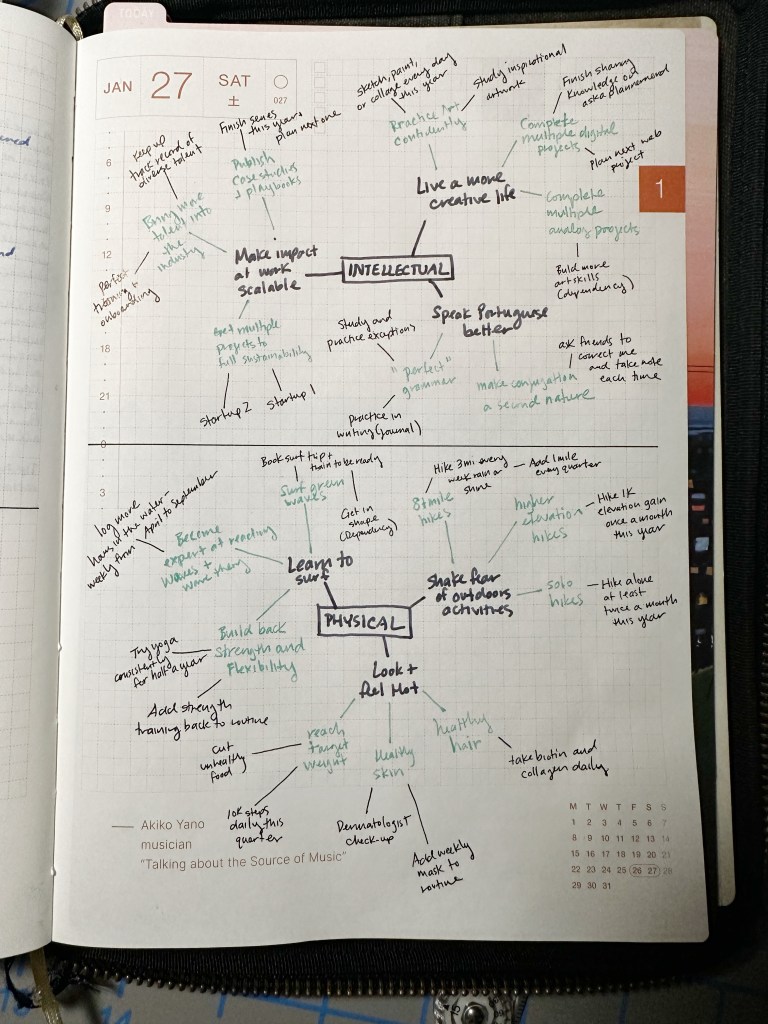 TODAY
JAN 27 SAT
土
027
1
6
9
12
18
21
0
3
Finish series
this year +
plan next one
Publish
case studies
+ playbooks
keep up
track record of
diverse talent
Bring more
talent into
the
industry
Perfect
training +
onboarding
Make impact
at work
scalable
Get multiple
projects to
full sustainability
Startup 2
Startup 1
INTELLECTUAL
sketch, paint,
or collage every day
this year
Study inspirational
artwork
Practice Art
confidently
Live a more
creative life
Finish sharing
knowledge out
Complete
multiple digital
projects
Plan next web
project
Complete
multiple
analog projects
Build more
art skills
(dependency)
Speak Portuguese
better
Study and
practice exceptions
"perfect"
grammar
practice in
writing (journal)
make conjugation
a second nature
ask friends to
correct me
and take note
each time
PHYSICAL
Learn to
surf
Book surf trip +
train to be ready
Surf green
waves
Get in
shape
(Dependency)
log more
hours in the water -
weekly from April to September
Become
expert at reading
waves +
wave theory
Build back
strength and
Flexibility
Try yoga
consistently
for half a year
Add strength
training back to routine
Shake fear
of outdoors
activities
8+ mile
hikes
Hike 3mi every
week rain or
shine
Add 1 mile
every quarter
higher
elevation
hikes
Hike 1K
elevation gain
once a month
this year
solo
hikes
Hike alone
at least
twice a month
this year
Look +
Feel Hot
reach
target
weight
cut
unhealthy
food
10K steps
daily this
quarter
Healthy
skin
Dermatologist
check-up
Add weekly
mask to
routine
healthy
hair
take biotin and
collagen daily
— Akiko Yano
musician
"Talking about the Source of Music"
M T W T F S S
1 2 3 4 5 6 7
8 9 10 11 12 13 14
15 16 17 18 19 20 21
22 23 24 25 26 27 28
29 30 31